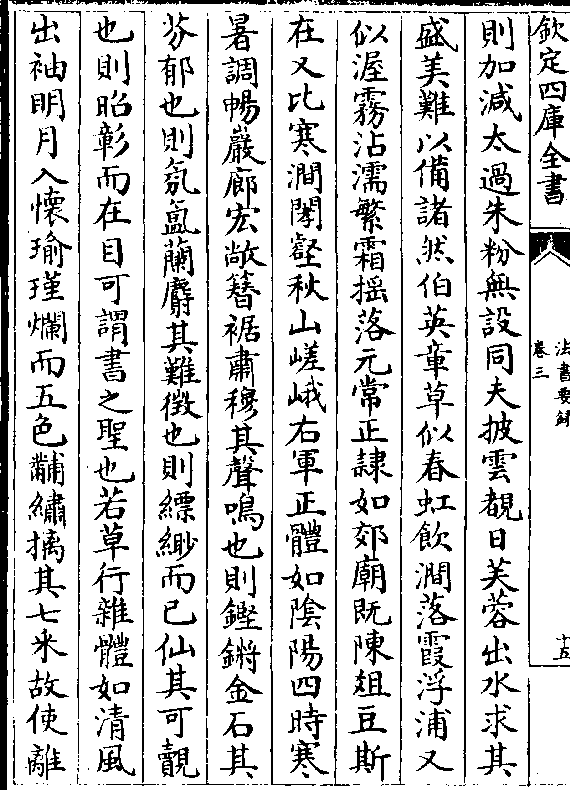 欽定四庫全書
法書要録
卷三
十五
則加減太過朱粉無設同夫披雲覩日芙蓉出水求其
盛美難以備諸然伯英章草似春虹飲澗落霞浮浦又
似渥霧沾濡繁霜揺落元常正隷如郊廟既陳俎豆斯
在又比寒澗閣壑秋山嵯峨右軍正體如隂陽四時寒
暑調暢巖廊宏敞簪裾肅穆其聲鳴也則鏗鏘金石其
芬郁也則氛氲蘭麝其難徴也則縹緲而已仙其可覿
也則昭彰而在目可謂書之聖也若草行雜體如清風
出袖明月入懷瑜瑾爛而五色黼繡摛其七采故使離